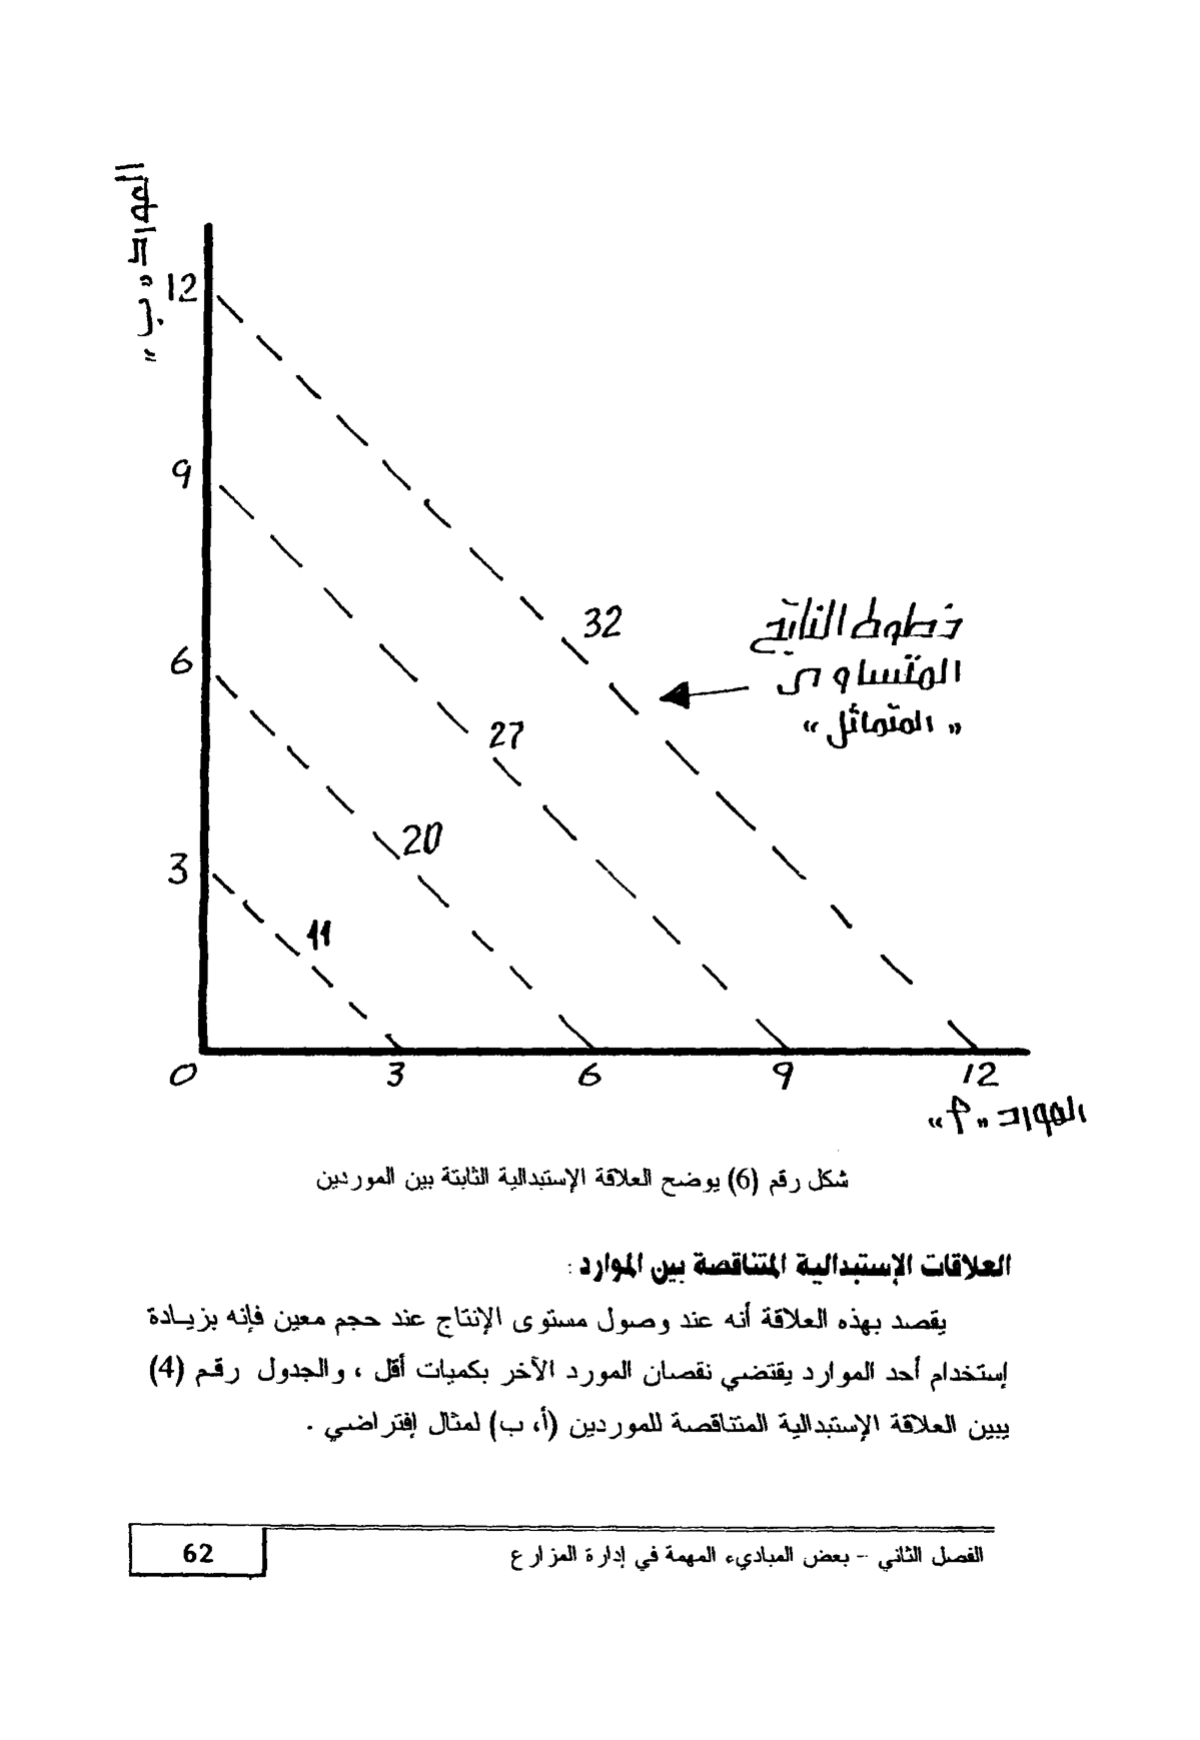 المورد "ب"
12
9
6
3
32
27
20
11
خطوط الناتج
المتساوى
"المتماثل"
0 3 6 9 12
المورد "أ"
شكل رقم (6) يوضح العلاقة الإستبدالية الثابتة بين الموردين
العلاقات الإستبدالية المتناقصة بين الموارد :
يقصد بهذه العلاقة أنه عند وصول مستوى الإنتاج عند حجم معين فإنه بزيادة
إستخدام أحد الموارد يقتضي نقصان المورد الآخر بكميات أقل ، والجدول رقم (4)
يبين العلاقة الإستبدالية المتناقصة للموردين (أ، ب) لمثال إفتراضي .
الفصل الثاني – بعض المباديء المهمة في إدارة المزارع
62